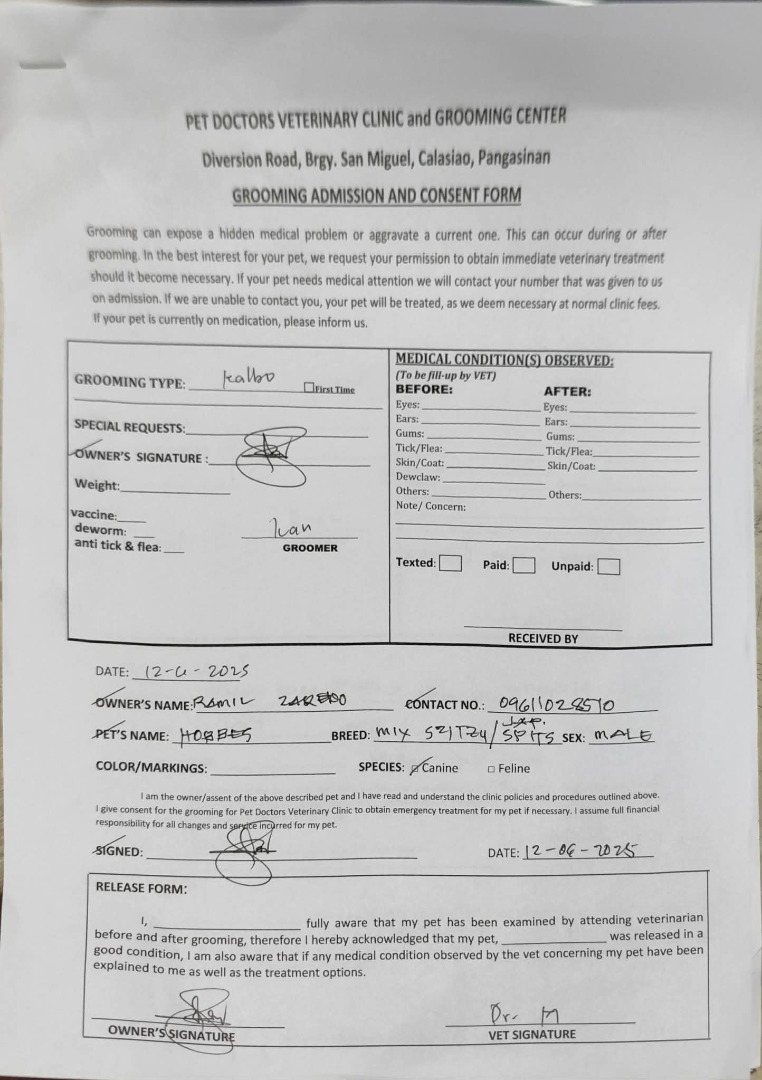 PET DOCTORS VETERINARY CLINIC and GROOMING CENTER
Diversion Road, Brgy. San Miguel, Calasiao, Pangasinan
GROOMING ADMISSION AND CONSENT FORM
Grooming can expose a hidden medical problem or aggravate a current one. This can occur during or after
grooming. In the best interest for your pet, we request your permission to obtain immediate veterinary treatment
should it become necessary. If your pet needs medical attention we will contact your number that was given to us
on admission. If we are unable to contact you, your pet will be treated, as we deem necessary at normal clinic fees.
If your pet is currently on medication, please inform us.
GROOMING TYPE: kalbo
First Time
SPECIAL REQUESTS:
OWNER'S SIGNATURE :
Weight:
vaccine:
deworm:
anti tick & flea:
Ivan
GROOMER
MEDICAL CONDITION(S) OBSERVED:
(To be fill-up by VET)
BEFORE: AFTER:
Eyes: Eyes:
Ears: Ears:
Gums: Gums:
Tick/Flea: Tick/Flea:
Skin/Coat: Skin/Coat:
Dewclaw:
Others: Others:
Note/ Concern:
Texted: Paid: Unpaid:
RECEIVED BY
DATE: 2025
OWNER'S NAME: RAMIL CONTACT NO.: 09611028570
PET'S NAME: HOBBES BREED: MIX SZITZU/ JAP. SPITS SEX: MALE
COLOR/MARKINGS: SPECIES: Canine Feline
I am the owner/assent of the above described pet and I have read and understand the clinic policies and procedures outlined above.
I give consent for the grooming for Pet Doctors Veterinary Clinic to obtain emergency treatment for my pet if necessary. I assume full financial
responsibility for all changes and service incurred for my pet.
SIGNED: DATE: 12-06-2025
RELEASE FORM:
I, fully aware that my pet has been examined by attending veterinarian
before and after grooming, therefore I hereby acknowledged that my pet, was released in a
good condition, I am also aware that if any medical condition observed by the vet concerning my pet have been
explained to me as well as the treatment options.
Dr. M
OWNER'S SIGNATURE VET SIGNATURE